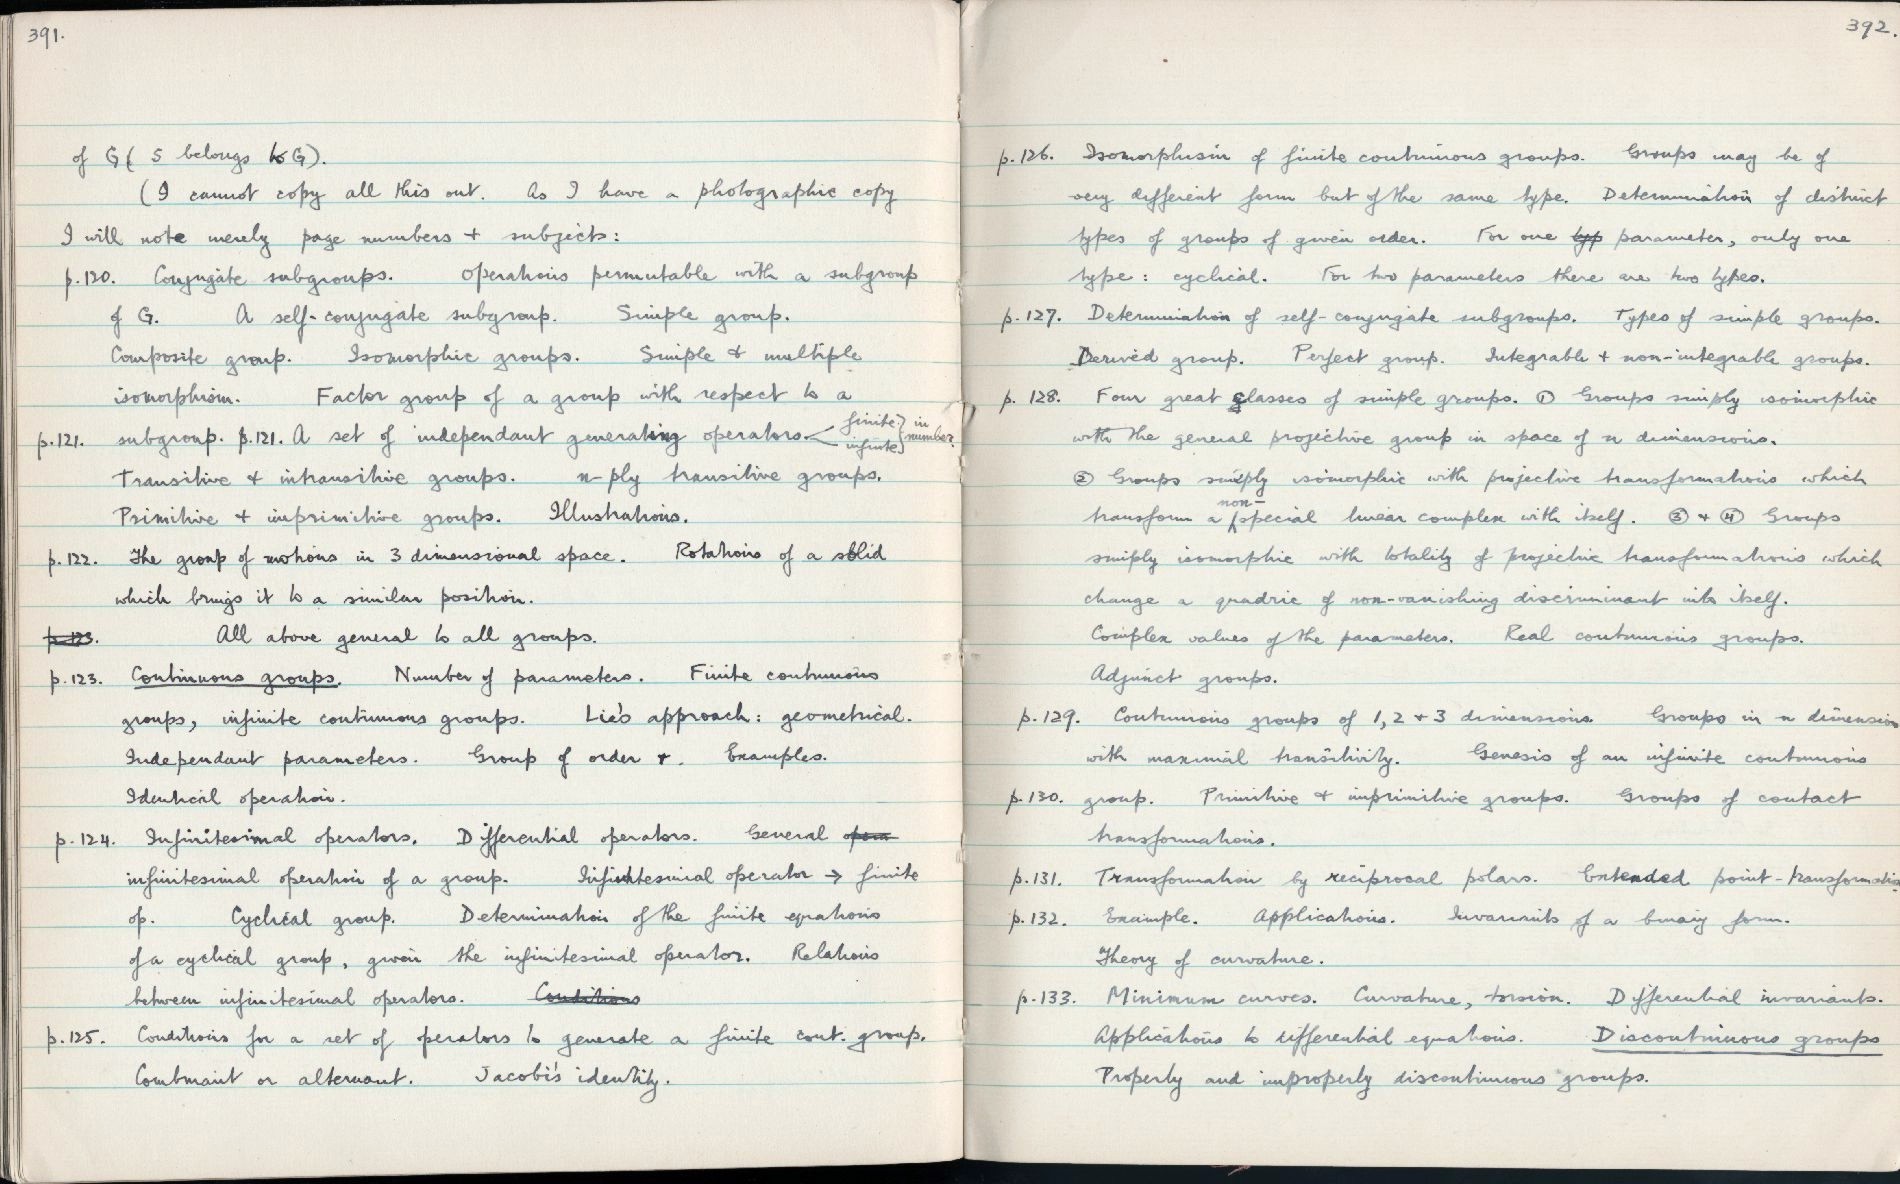 391.
of G ( S belongs to G).
(I cannot copy all this out. As I have a photographic copy
I will note merely page numbers + subjects:
p.120. Conjugate subgroups. Operations permutable with a subgroup
of G. A self-conjugate subgroup. Simple group.
Composite group. Isomorphic groups. Simple & multiple
isomorphism. Factor group of a group with respect to a
p.121. subgroup. p.121. A set of independant generating operators < finite infinite } in number.
Transitive & intransitive groups. n-ply transitive groups.
Primitive & imprimitive groups. Illustrations.
p.122. The group of motions in 3 dimensional space. Rotations of a solid
which brings it to a similar position.
p.123. All above general to all groups.
p.123. Continuous groups. Number of parameters. Finite continuous
groups, infinite continuous groups. Lie's approach: geometrical.
Independant parameters. Group of order r. Examples.
Identical operation.
p.124. Infinitesimal operators. Differential operators. General opera
infinitesimal operation of a group. Infinitesimal operator → finite
op. Cyclical group. Determination of the finite equations
of a cyclical group, given the infinitesimal operator. Relations
between infinitesimal operators. Conditions
p.125. Conditions for a set of operators to generate a finite cont. group.
Combinant or alternant. Jacobi's identity.
392.
p.126. Isomorphism of finite continuous groups. Groups may be of
very different form but of the same type. Determination of distinct
types of groups of given order. For one typ parameter, only one
type: cyclical. For two parameters there are two types.
p.127. Determination of self-conjugate subgroups. Types of simple groups.
Derived group. Perfect group. Integrable + non-integrable groups.
p.128. Four great classes of simple groups. ① Groups simply isomorphic
with the general projective group in space of n dimensions.
② Groups simply isomorphic with projective transformations which
transform a non-special linear complex with itself. ③ & ④ Groups
simply isomorphic with totality of projective transformations which
change a quadric of non-vanishing discriminant into itself.
Complex values of the parameters. Real continuous groups.
Adjunct groups.
p.129. Continuous groups of 1, 2 + 3 dimensions. Groups in n dimension
with maximal transitivity. Genesis of an infinite continuous
p.130. group. Primitive & imprimitive groups. Groups of contact
transformations.
p.131. Transformation by reciprocal polars. Extended point-transformatio
p.132. Example. Applications. Invariants of a binary form.
Theory of curvature.
p.133. Minimum curves. Curvature, torsion. Differential invariants.
Applications to differential equations. Discontinuous groups
Properly and improperly discontinuous groups.